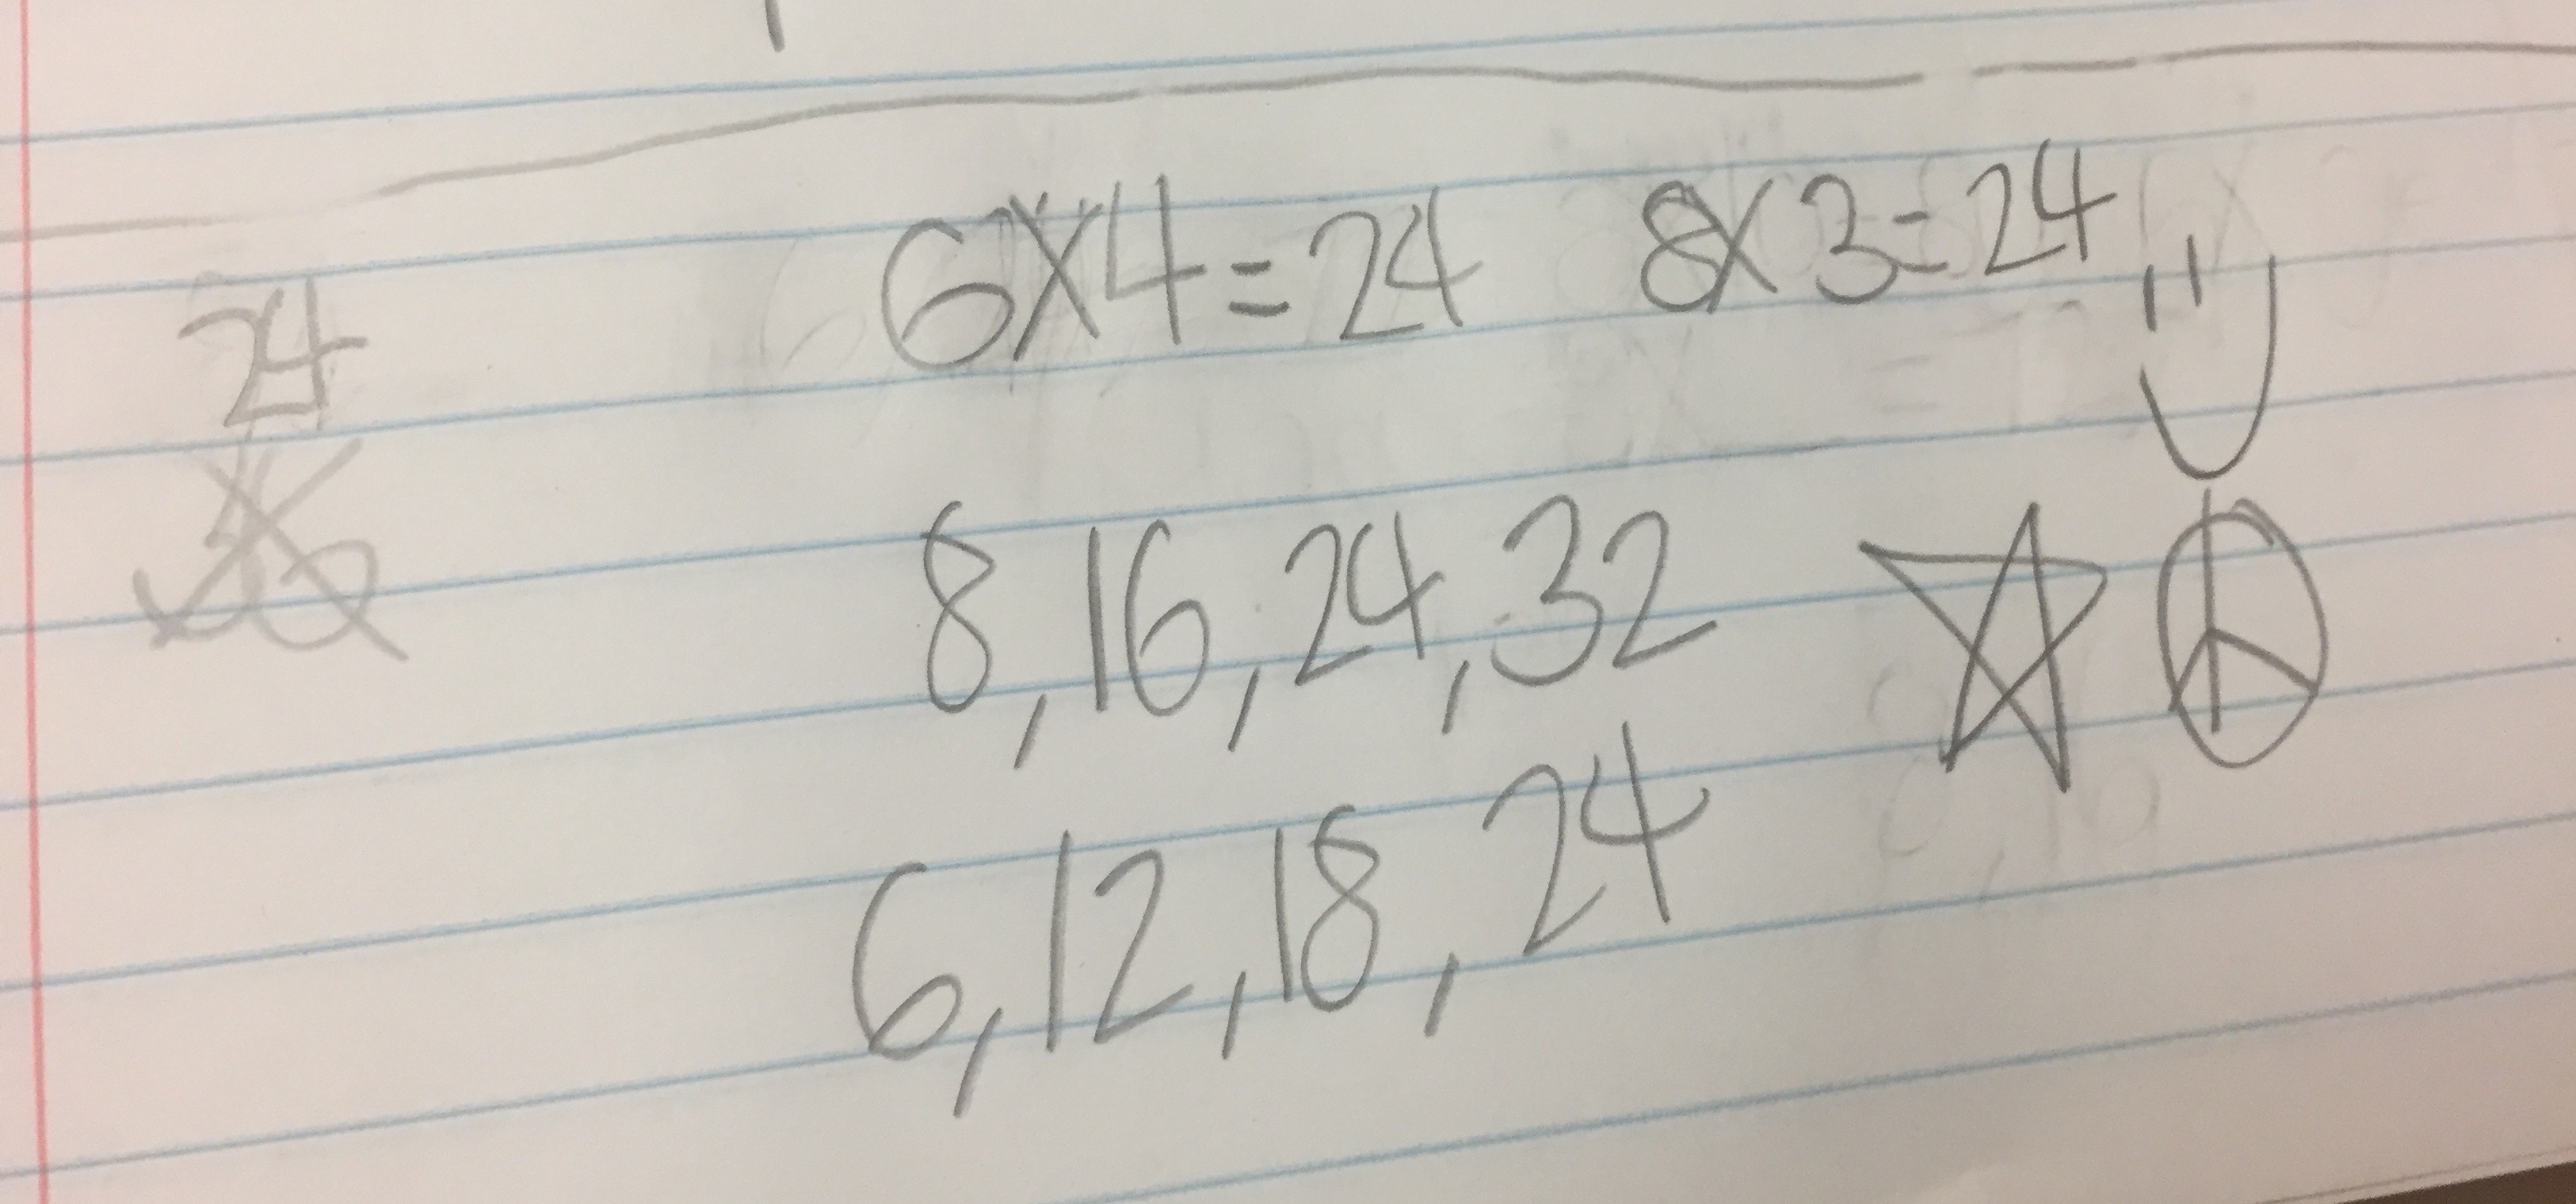 6x4=24 8x3=24
24
8,16,24,32
6,12,18,24